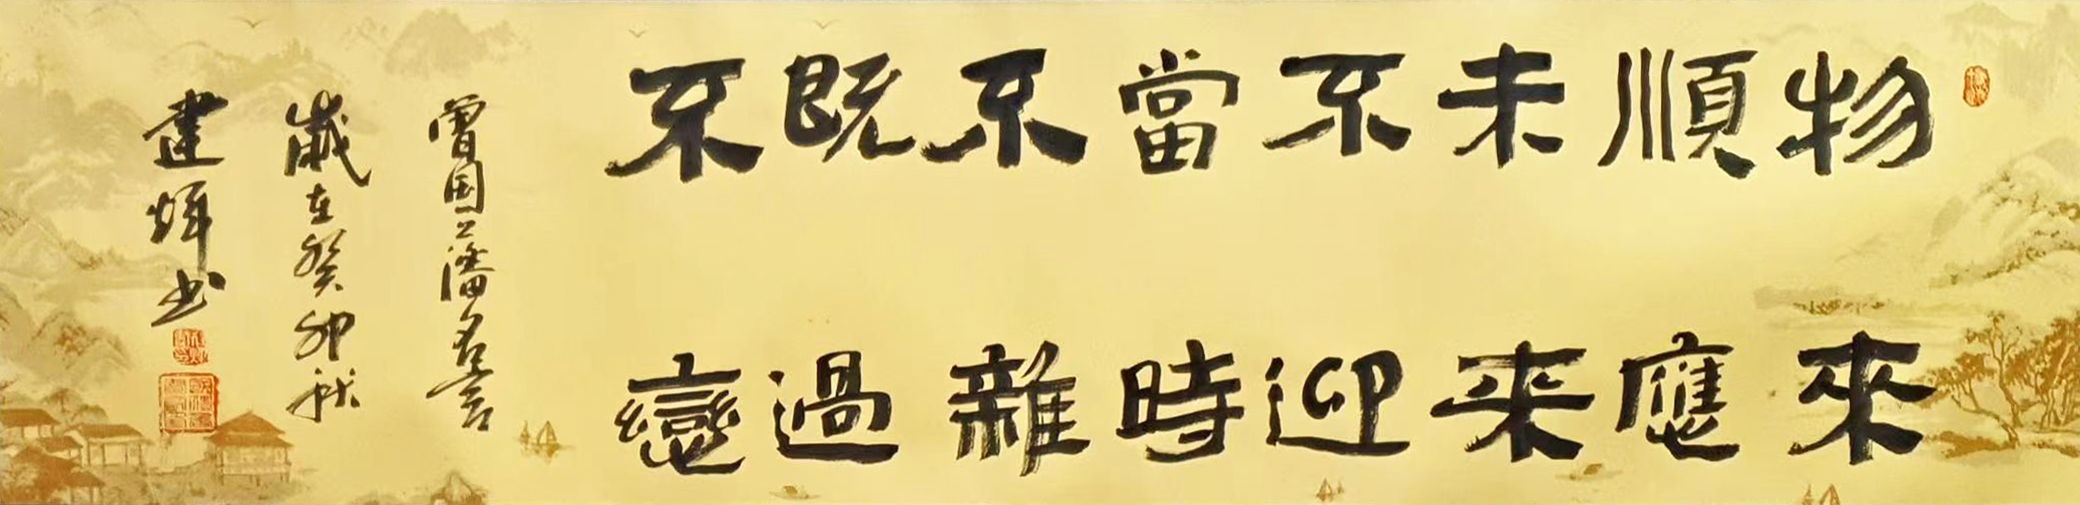 物來
順應
未来
不迎
當時
不雜
既過
不戀
曾国藩名言
歲在癸卯秋
建煇书